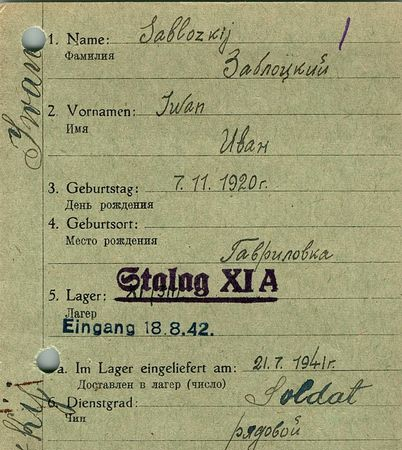 1. Name: Sablozkij
Фамилия
Заблоцкий
2. Vornamen: Iwan
Имя
Иван
3. Geburtstag: 7. 11. 1920 г.
День рождения
4. Geburtsort:
Место рождения
Гавриловка
Stalag XI A
5. Lager:
Лагер
Eingang 18. 8. 42.
a. Im Lager eingeliefert am: 21. 7. 1941 г.
Доставлен в лагер (число)
6. Dienstgrad: Soldat
Чин
рядовой
Iwan